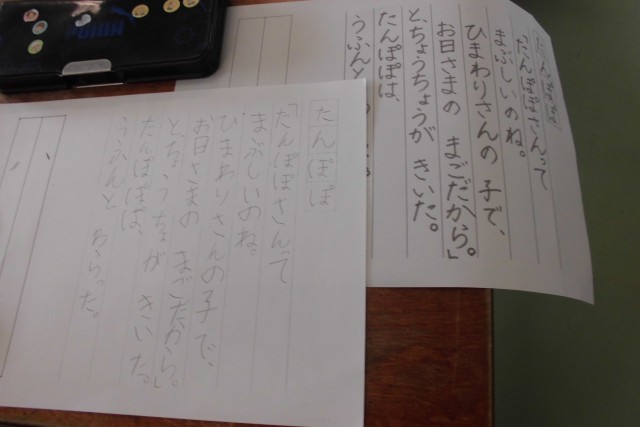 「たんぽぽさんって
まぶしいのね。
ひまわりさんの 子で、
お日さまの まごだから。」
と、ちょうちょうが きいた。
たんぽぽは、
うふんと
たんぽぽ
「たんぽぽさんって
まぶしいのね。
ひまわりさんの子で、
お日さまの まごだから。」
と、ちょうちょが きいた。
たんぽぽは、
うふんと
わらった。